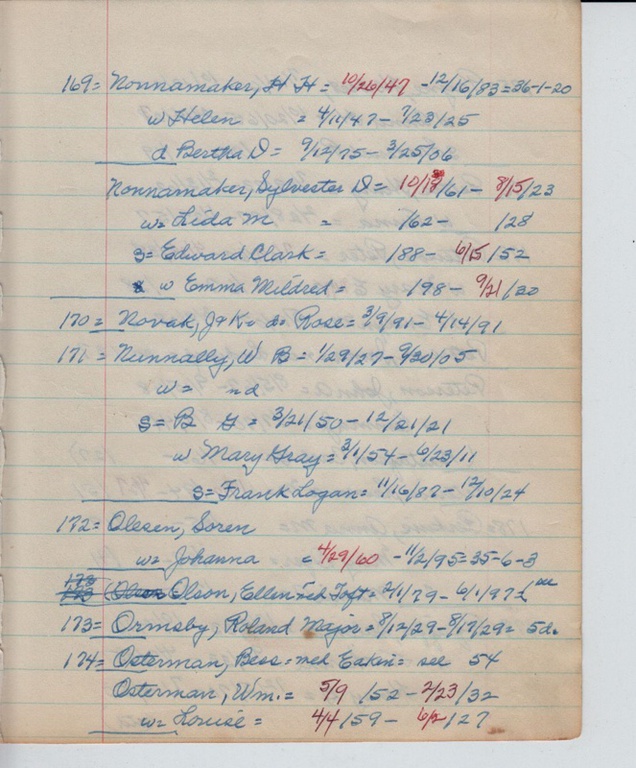 169= Nonnamaker, H H= 10/26/47 -12/16/83=36-1-20
w Helen = 4/11/47- 7/23/25
d Bertha D= 9/12/75- 3/25/06
Nonnamaker, Sylvester D= 10/18/61- 8/15/23
w= Lida M = /62- /28
s= Edward Clark= /88- 6/15/52
w Emma Mildred= /98- 9/21/20
170= Novak, J & K= d= Rose= 3/9/91- 4/14/91
171= Nunnally, W B= 1/29/27- 9/30/05
w= nd
s= B G = 3/21/50-12/21/21
w Mary Gray= 3/1/54- 6/23/11
s= Frank Logan= 11/16/87- 12/10/24
172= Olesen, Soren
w= Johanna = 4/29/60 -11/2/95=35-6-3
173 Olson, Ellen nee Toft= 2/1/79- 6/1/97
173= Ormsby, Roland Major=8/12/29-8/17/29= 5d.
174= Osterman, Bess= ned Eakin= see 54
Osterman, Wm.= 5/9/52- 2/23/32
w= Louise= 4/4/59- 6/2/27